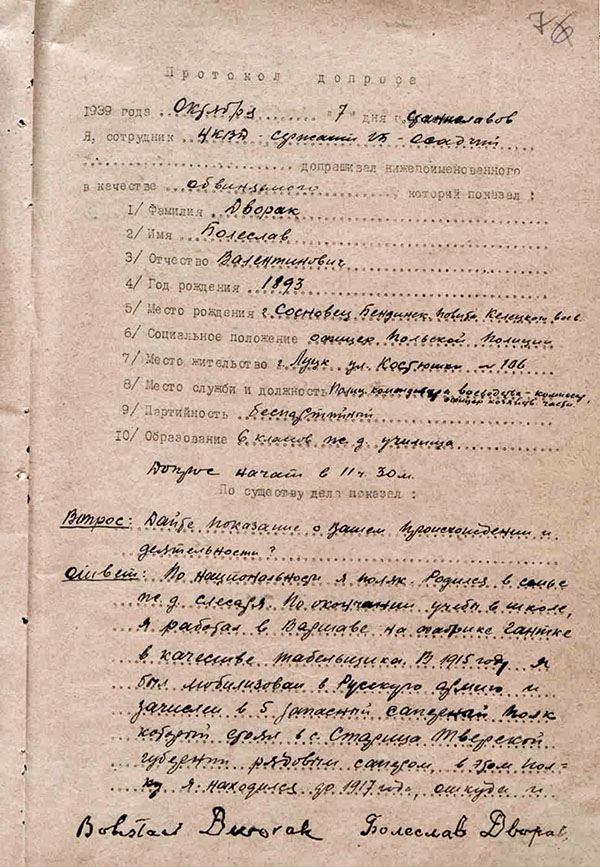 76
Протокол допроса
1939 года Октября "7" дня г. Станиславов
Я, сотрудник НКВД - сержант ГБ - Осадчий
допрашивал нижепоименованного
в качестве обвиняемого который показал:
1/ Фамилия Дворак
2/ Имя Болеслав
3/ Отчество Валентинович
4/ Год рождения 1893
5/ Место рождения г. Сосновец Бендинск. повята Келецкого воев.
6/ Социальное положение офицер Польской Полиции
7/ Место жительство г. Луцк ул. Костюшки №106
8/ Место службы и должность Полиц. комендатура воеводства - комиссар,
офицер хозяйств. части
9/ Партийность Беспартийный
10/ Образование 6 классов ж.д. училища
Допрос начат в 11 ч. 30 м.
По существу дела показал:
Вопрос: Дайте показание о Вашем происхождении и
деятельности?
Ответ: По национальности я поляк. Родился в семье
ж.д. слесаря. По окончании учебы в школе,
я работал в Варшаве на фабрике Гантке
в качестве табельщика. В 1915 году я
был мобилизован в Русскую армию и
зачислен в 5 запасный саперный полк
который стоял в с. Старица Тверской
губернии рядовым сапером, в этом пол-
ку я находился до 1917 года, откуда и
Bolesław Dworak Болеслав Дворак